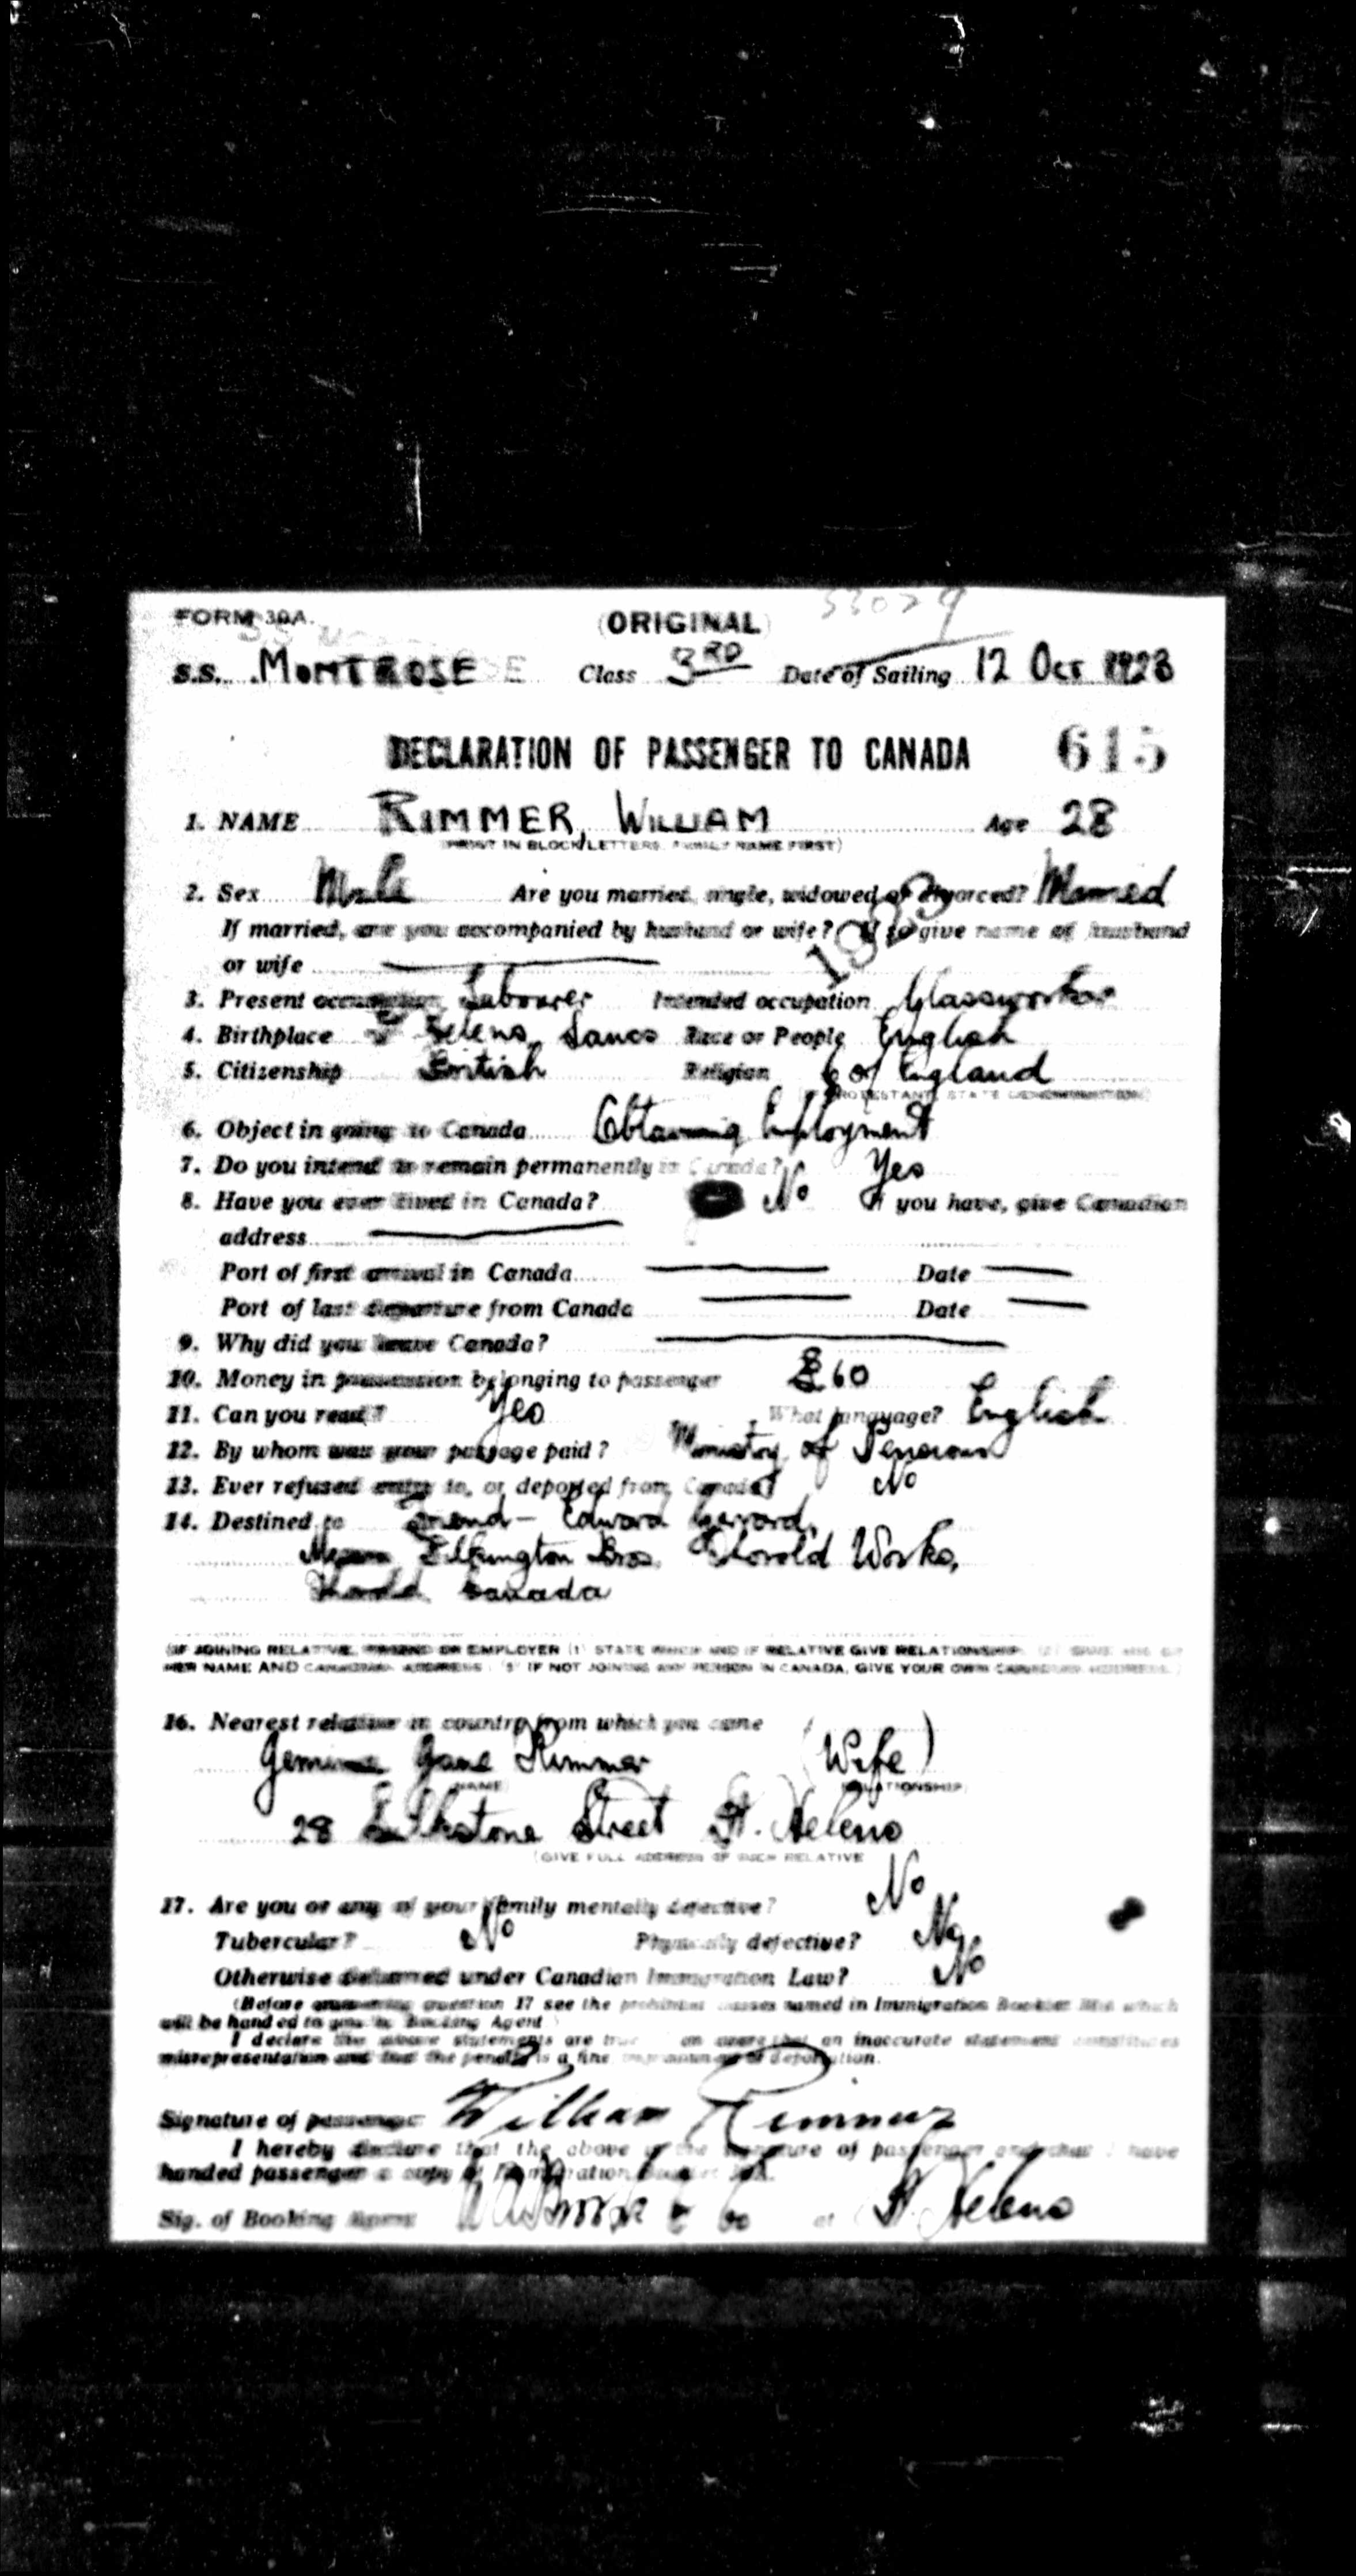 FORM 30A.
(ORIGINAL)
S.S. MONTROSE Class 3RD Date of Sailing 12 Oct 1923
DECLARATION OF PASSENGER TO CANADA 615
1. NAME RIMMER, WILLIAM Age 28
(PRINT IN BLOCK LETTERS, FAMILY NAME FIRST)
2. Sex Male Are you married, single, widowed or divorced? Married
If married, are you accompanied by husband or wife? If so give name of husband
or wife
3. Present occupation Labourer Intended occupation Glassworker
4. Birthplace St Helens, Lancs Race or People English
5. Citizenship British Religion C of England
(IF PROTESTANT, STATE DENOMINATION)
6. Object in going to Canada Obtaining Employment
7. Do you intend to remain permanently in Canada? Yes
8. Have you ever lived in Canada? No If you have, give Canadian
address
Port of first arrival in Canada Date
Port of last departure from Canada Date
9. Why did you leave Canada?
10. Money in possession belonging to passenger £60
11. Can you read? Yes What language? English
12. By whom was your passage paid? Ministry of Pensions
13. Ever refused entry to, or deported from Canada? No
14. Destined to Friend - Edward Gerrard,
Messrs Pilkington Bros. Thorold Works,
Thorold Canada
(IF JOINING RELATIVE, FRIEND OR EMPLOYER (1) STATE WHICH AND IF RELATIVE GIVE RELATIONSHIP. (2) GIVE HIS OR
HER NAME AND CANADIAN ADDRESS. (3) IF NOT JOINING ANY PERSON IN CANADA, GIVE YOUR OWN CANADIAN ADDRESS.)
16. Nearest relative in country from which you came
Jane Rimmer (Wife)
(NAME) (RELATIONSHIP)
28 Street St. Helens
(GIVE FULL ADDRESS OF SUCH RELATIVE
17. Are you or any of your family mentally defective? No
Tubercular? No Physically defective? No
Otherwise debarred under Canadian Immigration Law? No
(Before answering question 17 see the prohibited classes named in Immigration Booklet which
will be handed to you by Booking Agent)
I declare the above statements are true am aware that an inaccurate statement constitutes
misrepresentation and that the penalty is a fine imprisonment or deportation.
Signature of passenger William Rimmer
I hereby declare that the above is the signature of passenger and that I have
handed passenger a copy of Immigration Booklet
Sig. of Booking Agent & Co at St. Helens